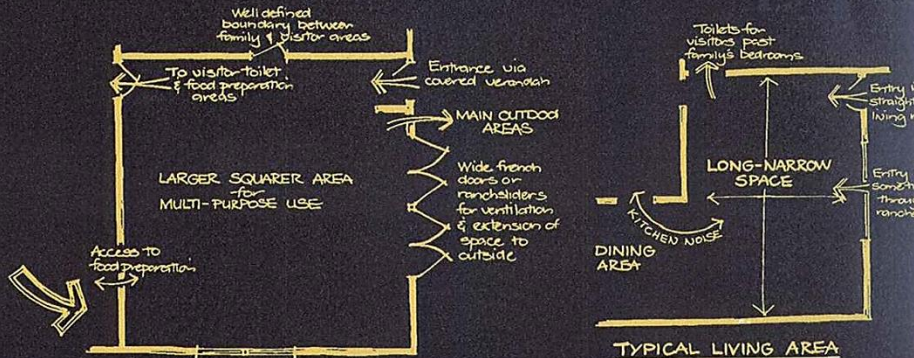 Well defined
boundary between
family & visitor areas
To visitor toilet
& food preparation
areas
Entrance via
covered verandah
MAIN OUTDOOR
AREAS
LARGER SQUARER AREA
for
MULTI-PURPOSE USE
Wide french
doors or
ranchsliders
for ventilation
& extension of
space to
outside
Access to
food preparation
Toilets for
visitors past
family's bedrooms
Entry
straight
living
LONG-NARROW
SPACE
Entry
throu
ranch
KITCHEN NOISE
DINING
AREA
TYPICAL LIVING AREA